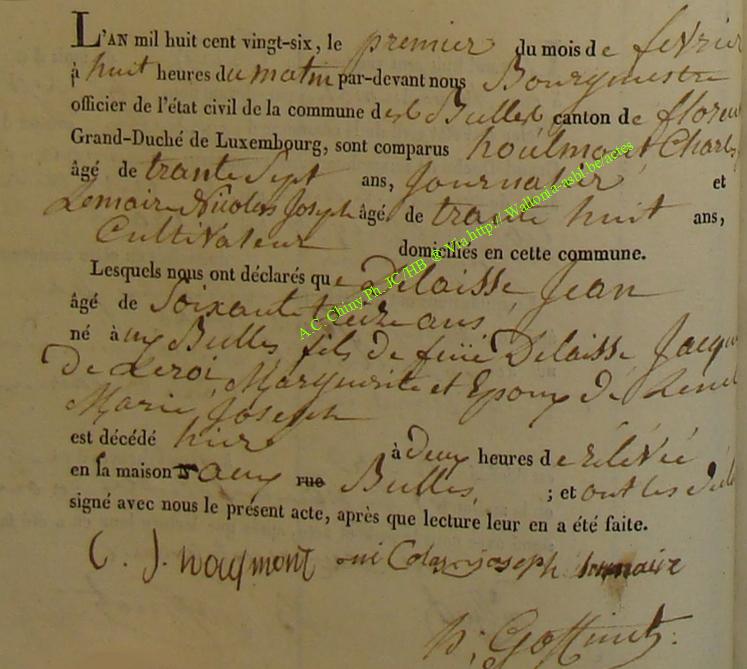 L'AN mil huit cent vingt-six, le premier du mois de fevrier
à huit heures du matin par-devant nous Bourgmestre
officier de l'état civil de la commune des Bulles canton de floren
Grand-Duché de Luxembourg, sont comparus houlmont Charles
âgé de trante Sept ans, Journalier et
Lemaire Nicolas Joseph âgé de trante huit ans,
Cultivateur domiciliés en cette commune.
Lesquels nous ont déclarés que Delaisse Jean
âgé de Soixante treize ans,
né à ux Bulles fils de feüe Delaisse Jacqu
de Leroi Marguerite et Epoux de
Marie Joseph
est décédé hier à deux heures de rélévée
en sa maison aux rue Bulles, ; et ont les
signé avec nous le présent acte, après que lecture leur en a été faite.
C. J. houlmont joseph lemaire
Goffinet
A.C. Chiny Ph. JC/HB @ Via http://Wallonia-asbl.be/actes